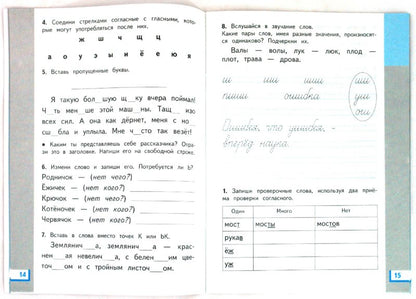 4. Соедини стрелками согласные с гласными, кото-
рые могут употребляться после них.
ж ш ч щ ц
а о у э ы и ё е ю я
5. Вставь пропущенные буквы.
Я такую бол__шую щ__ку вчера поймал!
Ч__ть мен__ше этой маш__ны. Тащ__ изо
всех сил. А она как дёрнет, меня с но
сш__бла и уплыла. Мне ч__сто так везёт!
● Каким ты представляешь себе рассказчика? Отрази
это в заголовке. Напиши его на свободной строке.
6. Измени слово и запиши его. Потребуется ли Ь?
Родничок — (нет чего?)
Ёжичек — (нет кого?)
Крючок — (нет чего?)
Котёночек — (нет кого?)
Червячок — (нет кого?)
7. Вставь в слова вместо точек К или ЬК.
Землянич__а, землянич__а — крас-
нен__ая невелич__а, с белен__им цве-
точ__ом и с тройным листоч__ом.
14
8. Вслушайся в звучание слов.
Какие пары слов, имея разные значения, произносят-
ся одинаково? Подчеркни их.
Валы — волы, лук — люк, плод —
плот, трава — дрова.
ш ши шии ши
пиши ошибка уш
Ошибка, что ушибка, -
вперёд наука.
1. Запиши проверочные слова, используя два приё-
ма проверки согласного.
Один Много Нет
мост мосты мостов
рукав
ёж
уж
15